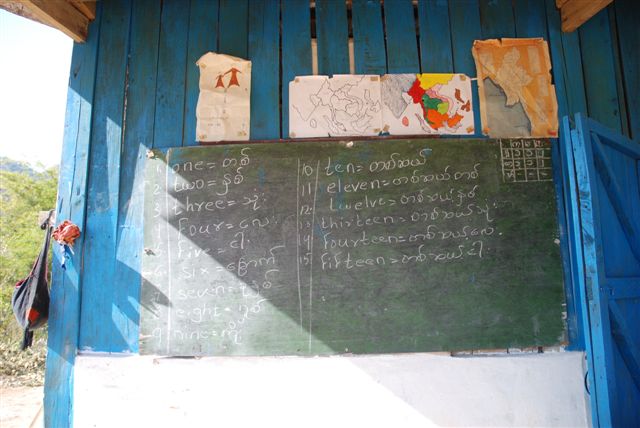 1. one = တစ်
2 two = နှစ်
3 three = သုံး
four = လေး
five = ငါး
six = ခြောက်
seven = ခုနှစ်
eight = ရှစ်
9 nine = ကိုး
10 ten = တစ်ဆယ်
11 eleven = တစ်ဆယ်တစ်
12 twelve = တစ်ဆယ်နှစ်
13 thirteen = တစ်ဆယ်သုံး
14 fourteen = တစ်ဆယ်လေး
15 fifteen = တစ်ဆယ်ငါး